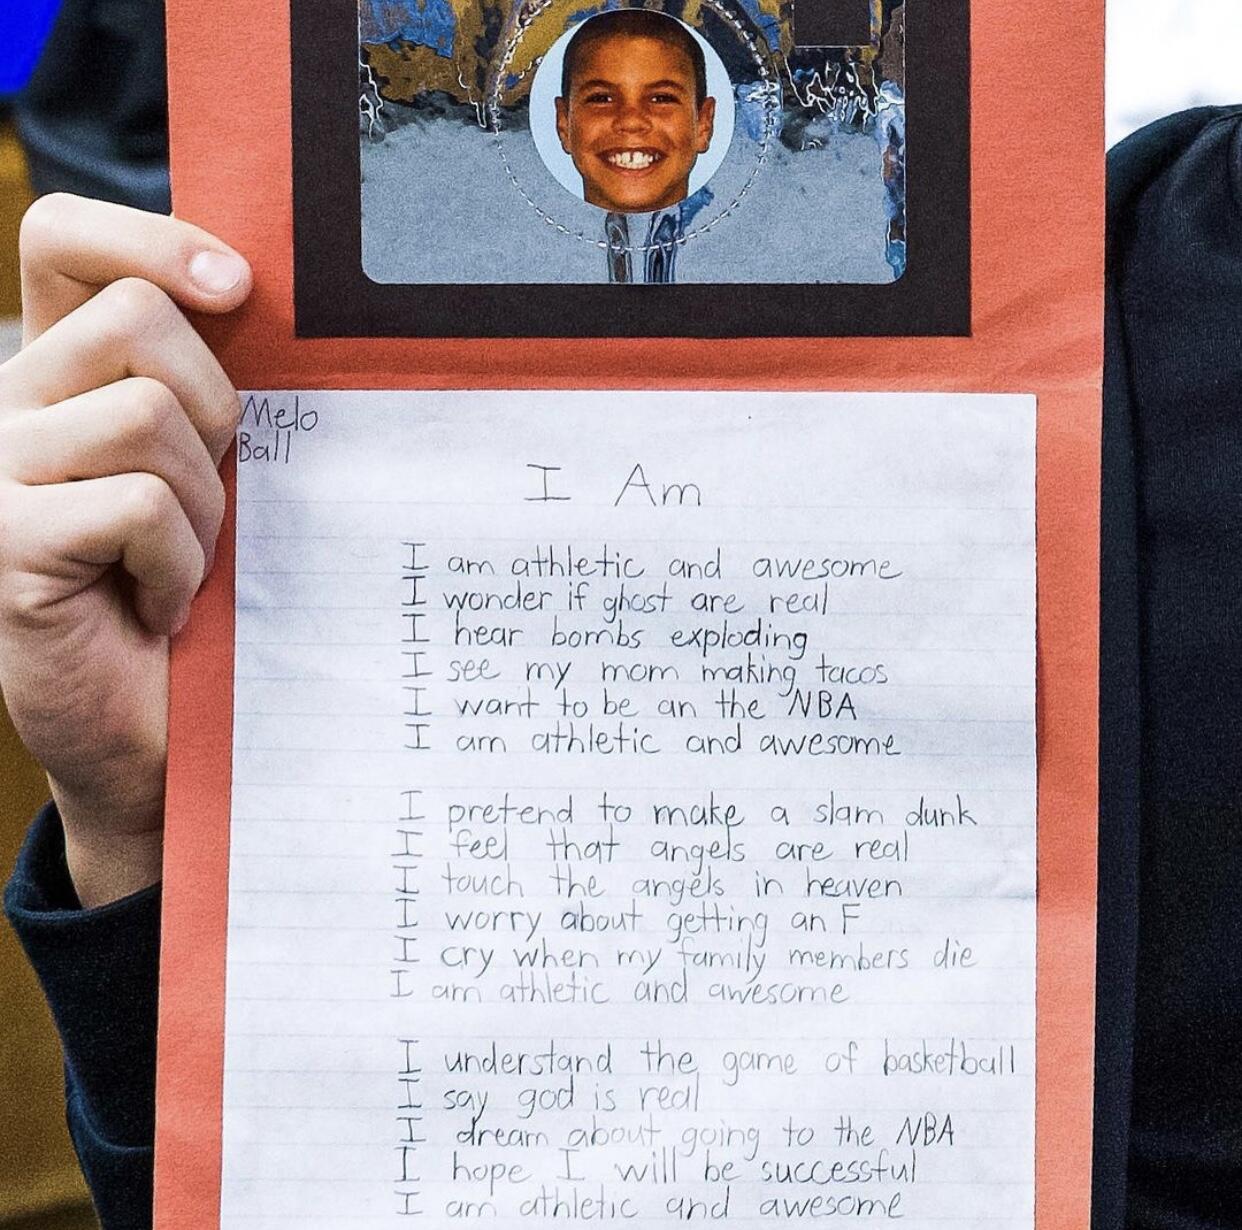 Melo
Ball
I Am
I am athletic and awesome
I wonder if ghost are real
I hear bombs exploding
I see my mom making tacos
I want to be an the NBA
I am athletic and awesome
I pretend to make a slam dunk
I feel that angels are real
I touch the angels in heaven
I worry about getting an F
I cry when my family members die
I am athletic and awesome
I understand the game of basketball
I say god is real
I dream about going to the NBA
I hope I will be successful
I am athletic and awesome